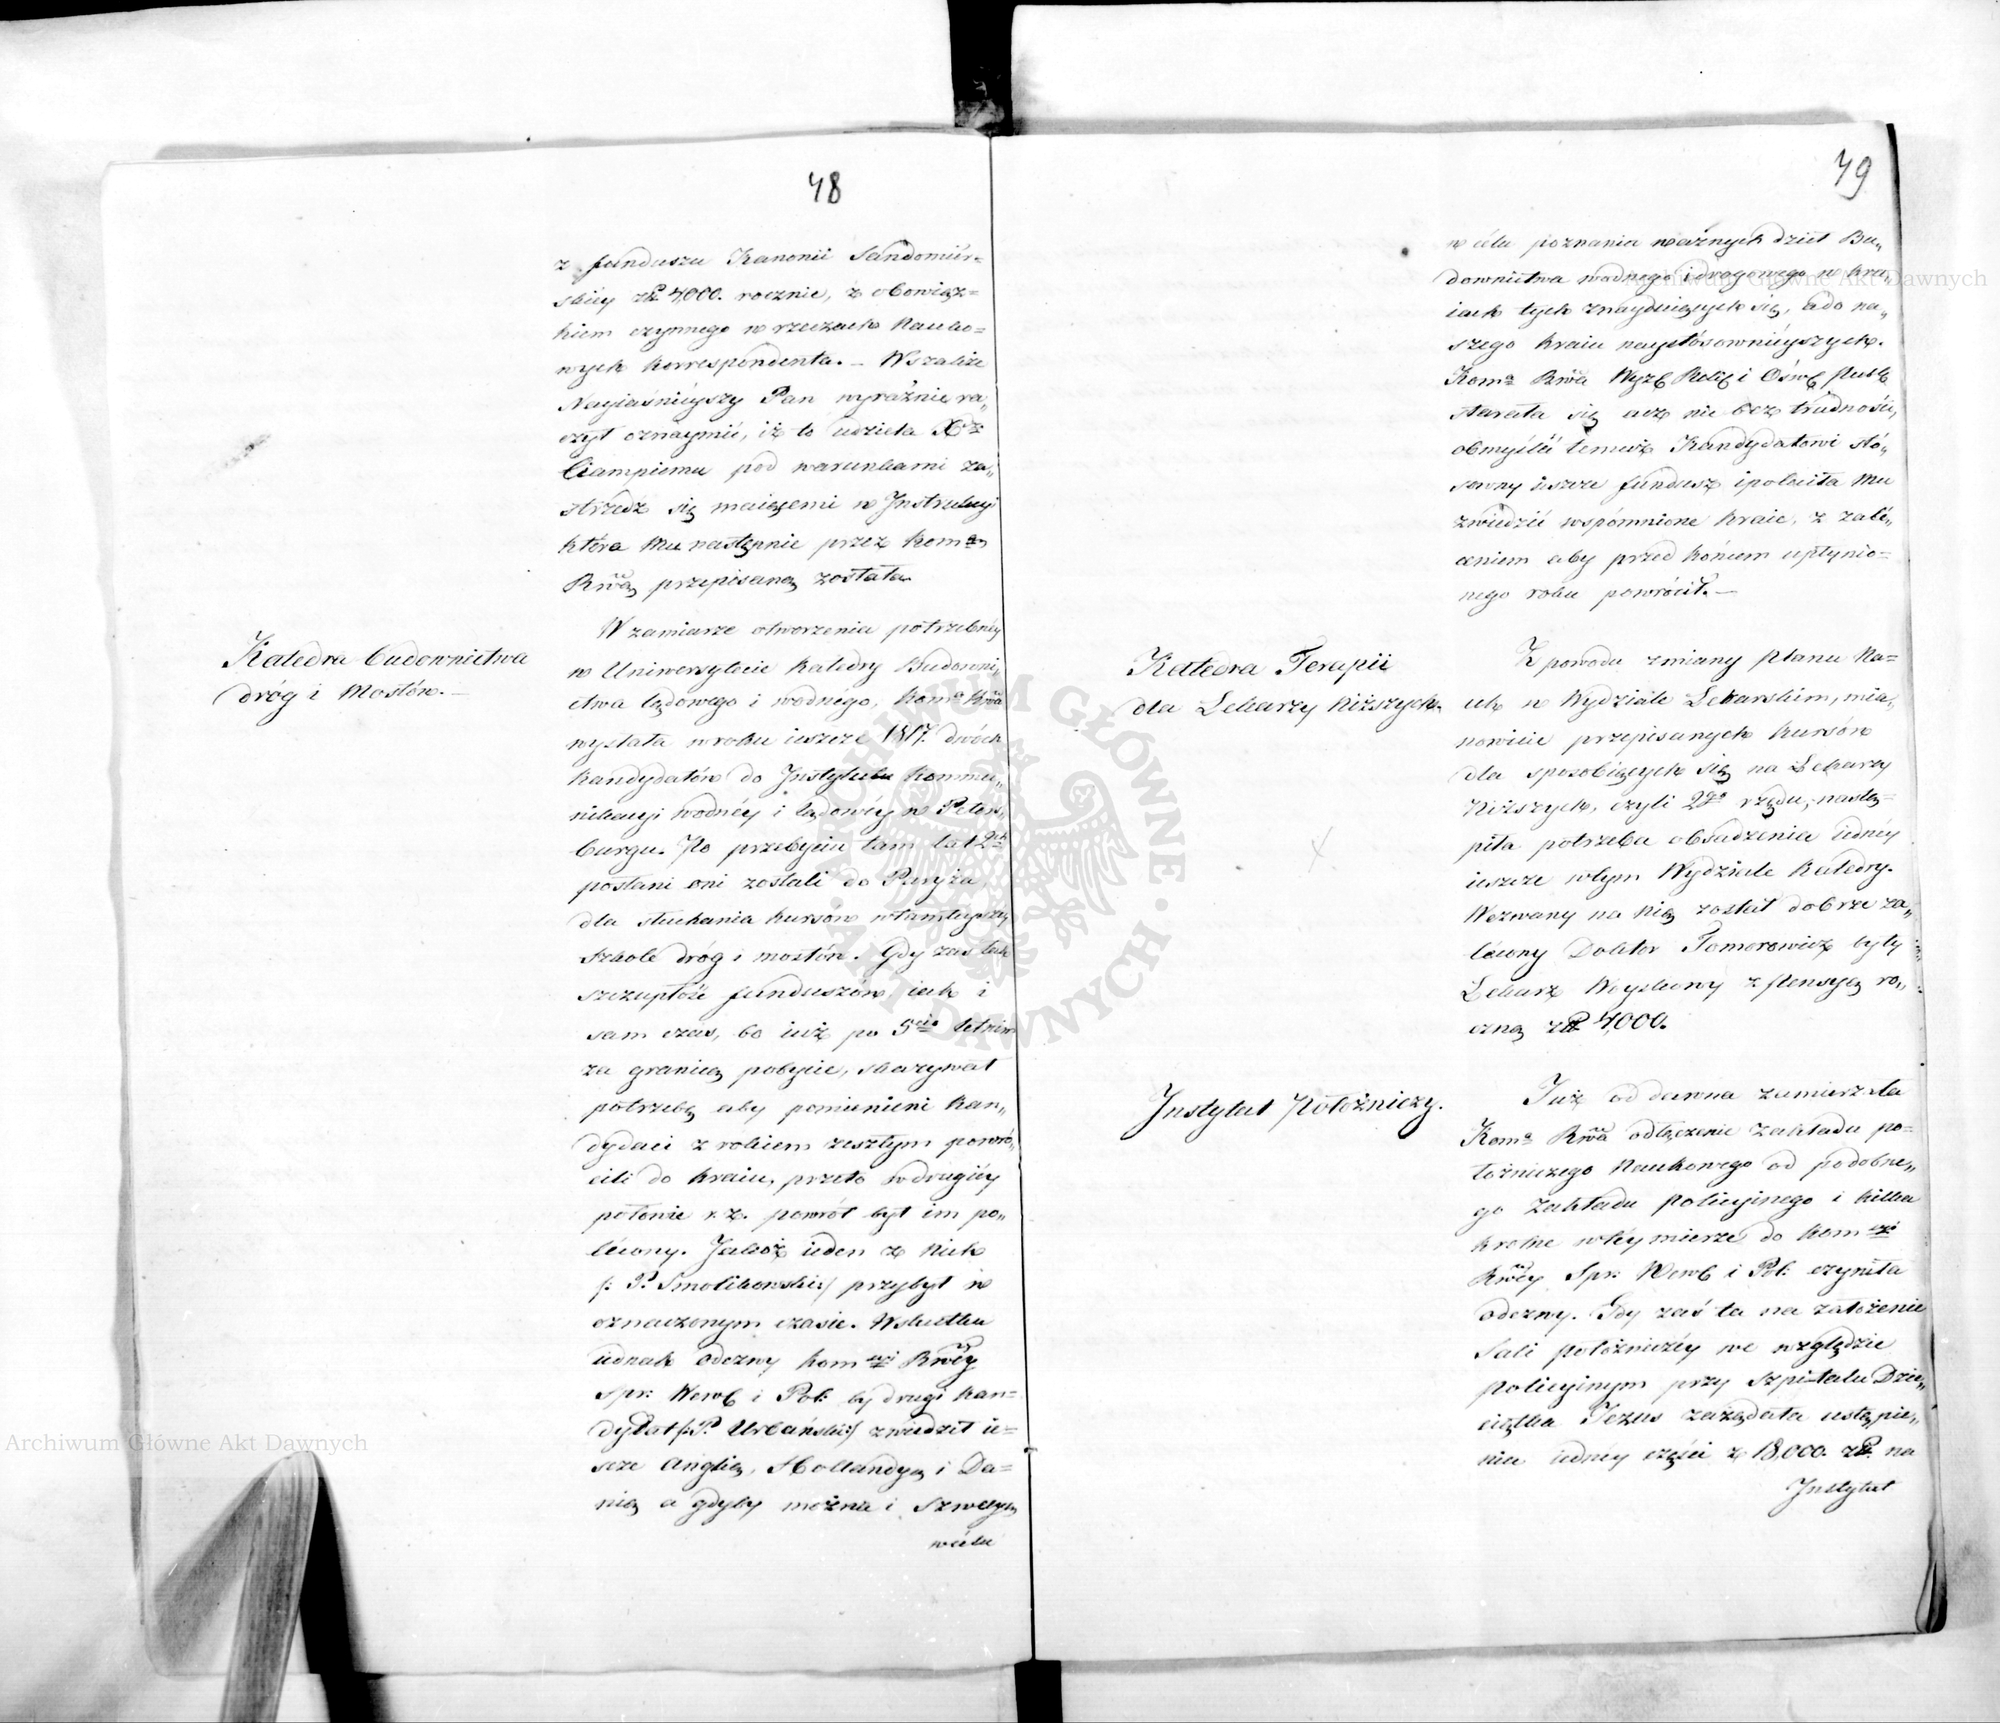 48
z funduszu Kanonii Sandomir=
skiéy złp 4,000. rocznie, z obowiąz=
kiem czynnego w rzeczach Nauko=
wych korrespondenta. – Wszakże
Nayiaśniéyszy Pan wyraźnie ra„
czył oznaymić, iż to udziela Xdzu
Ciampiemu pod warunkami za„
strzedz się maiącemi w Instrukcyi
która Mu następnie przez Komą
Rwą przepisaną została.
Katedra budownictwa
dróg i Mostów. –
W zamiarze otworzenia potrzebnéy
w Uniwersytecie Katedry Budowni„
ctwa lądowego i wodnégo, Koma Rwa
wysłała w roku ieszcze 1817. dwóch
kandydatów do Instytutu Kommu„
nikacyi wodnéy i lądowéy w Peters„
burgu. Po przebyciu tam lat 2ch
posłani oni zostali do Paryża,
dla słuchania kursów w tamteyszéy
szkole dróg i mostów. Gdy zaś tak
szczupłość funduszów, iak i
sam czas, bo iuż po 5cio letnim
za granicą pobycie, skazywał
potrzebę aby pomienieni kan„
dydaci z rokiem zeszłym powró„
cili do kraiu, przeto w drugiéy
połowie r. z. powrót był im po„
lécony. Jakoż ieden z nich
/: P. Smolikowski :/ przybył w
oznaczonym czasie. Wskutku
iednak odezwy Komcyi Rwéy
Spr: Wewn i Pol: by drugi kan=
dydat /: P. Urbański :/ zwiedził ie=
szcze Anglią, Hollandyą i Da=
nią a gdyby można i Szwecyą
w célu
49
w célu poznania ważnych dzieł Bu„
downictwa wodnego i drogowego w kra„
iach tych znayduiących się, a do na„
szego kraiu naystósowniéyszych.
Koma Rwa Wyzń Relig i Ośwn Publ
starała się acz nie bez trudności,
obmyślić temuż Kandydatowi stó„
sowny ieszcze fundusz i poleciła Mu
zwiedzić wspómnione kraie, z zalé„
ceniem aby przed końcem upłynio=
nego roku powrócił. –
Katedra Terapii
dla Lekarzy Niższych.
Z powodu zmiany Planu Na=
uk w Wydziale Lekarskim, mia„
nowicie przepisanych kursów
dla sposobiących się na Lekarzy
Niższych, czyli 2go rzędu, nastą=
piła potrzeba obsadzenia iednéy
ieszcze w tym Wydziale Katedry.
Wezwany na nią został dobrze za„
lécony Doktor Tomorowicz były
Lekarz Woyskowy z Pensyą ro„
czną złp 4,000.
Instytut Położniczy.
Już od dawna zamierzała
Koma Rwa odłączenie zakładu po=
łożniczego Naukowego od podobne„
go zakładu policyinego i kilka
krotne w téy mierze do Komcyi
Rwéy Spr: Wewn i Pol: czyniła
odezwy. Gdy zaś ta na założenie
Sali położniczéy we względzie
policyinym przy szpitalu Dzie„
ciątka Jezus zażądała ustąpie„
nia iednéy części z 18,000. złp. na
Instytut
Archiwum Główne Akt Dawnych
Archiwum Główne Akt Dawnych
ARCHIWUM GŁÓWNE · AKT DAWNYCH ·